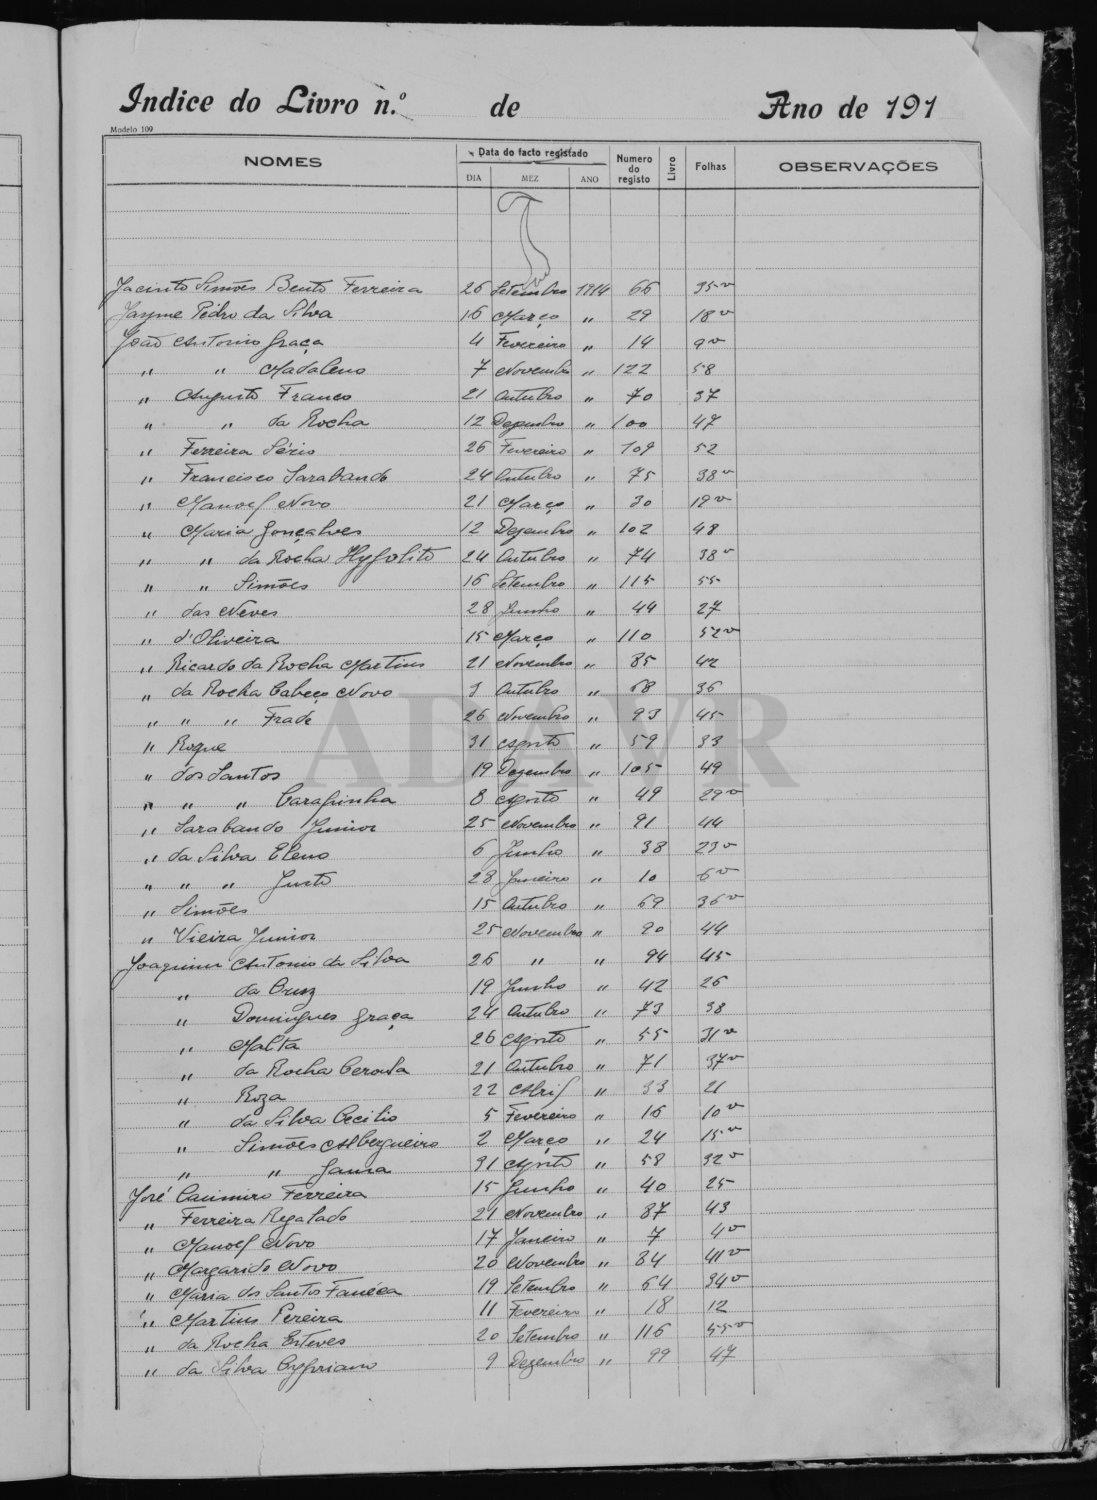 Indice do Livro n.º de Ano de 191
Modelo 109
NOMES Data do facto registado Numero do registo Livro Folhas OBSERVAÇÕES
DIA MEZ ANO
J
Jacinto Simões Bento Ferreira 26 Setembro 1914 66 35 v
Jayme Pedro da Silva 16 Março " 29 18 v
João Antonio Graça 4 Fevereiro " 14 9 v
" " Madaleno 7 Novembro " 122 58
" Augusto Franco 21 Outubro " 70 37
" " da Rocha 12 Dezembro " 100 47
" Ferreira Sério 26 Fevereiro " 109 52
" Francisco Sarabando 24 Outubro " 75 38 v
" Manoel Novo 21 Março " 30 19 v
" Maria Gonçalves 12 Dezembro " 102 48
" " da Rocha Hypolito 24 Outubro " 74 38 v
" " Simões 16 Setembro " 115 55
" das Neves 28 Junho " 44 27
" d'Oliveira 15 Março " 110 52 v
" Ricardo da Rocha Martins 21 Novembro " 85 42
" da Rocha Cabeço Novo 3 Outubro " 68 36
" " " Frade 26 Novembro " 93 45
" Roque 31 Agosto " 59 33
" dos Santos 19 Dezembro " 105 49
" " " Carapinha 8 Agosto " 49 29 v
" Sarabando Junior 25 Novembro " 91 44
" da Silva Eleno 6 Junho " 38 23 v
" " " Justo 28 Janeiro " 10 6 v
" Simões 15 Outubro " 69 36 v
" Vieira Junior 25 Novembro " 90 44
Joaquim Antonio da Silva 26 " " 94 45
" da Cruz 19 Junho " 42 26
" Domingues Graça 24 Outubro " 73 38
" Malta 26 Agosto " 55 31 v
" da Rocha 21 Outubro " 71 37 v
" Roza 22 Abril " 33 21
" da Silva Cecilio 5 Fevereiro " 16 10 v
" Simões Albergueiro 2 Março " 24 15 v
" " Gama 31 Agosto " 58 32 v
José Casimiro Ferreira 15 Junho " 40 25
" Ferreira Regalado 21 Novembro " 87 43
" Manoel Novo 17 Janeiro " 7 4 v
" Margarido Novo 20 Novembro " 84 41 v
" Maria dos Santos Faneca 19 Setembro " 64 34 v
" Martins Pereira 11 Fevereiro " 18 12
" da Rocha Esteves 20 Setembro " 116 55 v
" da Silva Cypriano 9 Dezembro " 99 47
ADAVR